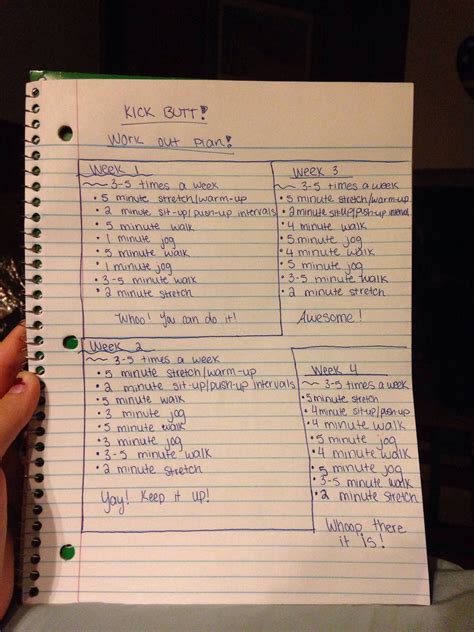 KICK BUTT!
Work out plan!
Week 1
~ 3-5 times a week
• 5 minute stretch/warm-up
• 2 minute sit-up/push-up intervals
• 5 minute walk
• 1 minute jog
• 5 minute walk
• 1 minute jog
• 3-5 minute walk
• 2 minute stretch
Whoo! You can do it!
Week 2
~ 3-5 times a week
• 5 minute stretch/warm-up
• 2 minute sit-up/push-up intervals
• 5 minute walk
• 3 minute jog
• 5 minute walk
• 3 minute jog
• 3-5 minute walk
• 2 minute stretch
Yay! Keep it up!
Week 3
~ 3-5 times a week
• 5 minute stretch/warm-up
• 2 minute sit-up/push-up interval
• 4 minute walk
• 5 minute jog
• 4 minute walk
• 5 minute jog
• 3-5 minute walk
• 2 minute stretch
Awesome!
Week 4
~ 3-5 times a week
• 5 minute stretch
• 4 minute sit up/push-up
• 4 minute walk
• 5 minute jog
• 4 minute walk
• 5 minute jog
• 3-5 minute walk
• 2 minute stretch
Whoop there
it is!